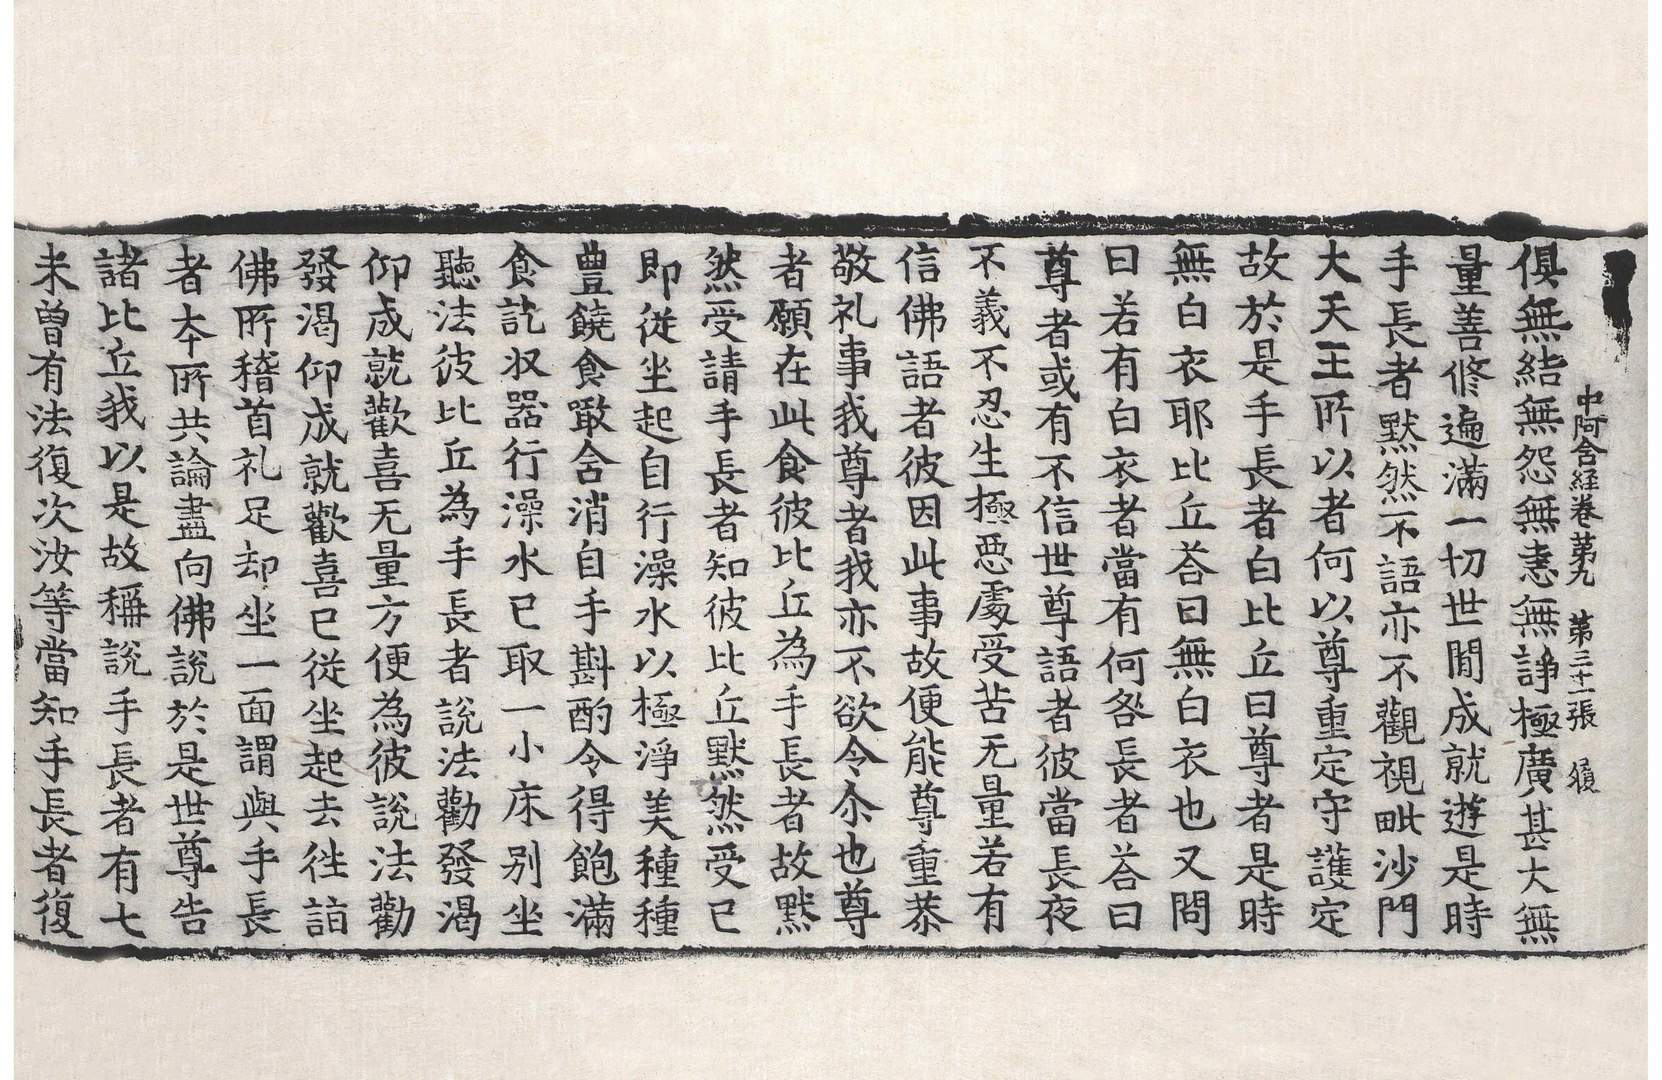 中阿含経卷苐九　第三十一張　履
俱無結無怨無恚無諍極廣甚大無
量善修遍滿一切世間成就遊是時
手長者默然不語亦不觀視毗沙門
大天王所以者何以尊重定守護定
故於是手長者白比丘曰尊者是時
無白衣耶比丘荅曰無白衣也又問
曰若有白衣者當有何咎長者荅曰
尊者或有不信世尊語者彼當長夜
不義不忍生極惡處受苦无量若有
信佛語者彼因此事故便能尊重恭
敬礼事我尊者我亦不欲令尒也尊
者願在此食彼比丘為手長者故默
然受請手長者知彼比丘默然受已
即從坐起自行澡水以極淨美種種
豊饒食噉含消自手斟酌令得飽滿
食訖收器行澡水已取一小床别坐
聽法彼比丘為手長者說法勸發渴
仰成就歡喜无量方便為彼說法勸
發渴仰成就歡喜已從坐起去往詣
佛所稽首礼足却坐一面謂與手長
者本所共論盡向佛說於是世尊告
諸比丘我以是故稱說手長者有七
未曾有法復次汝等當知手長者復